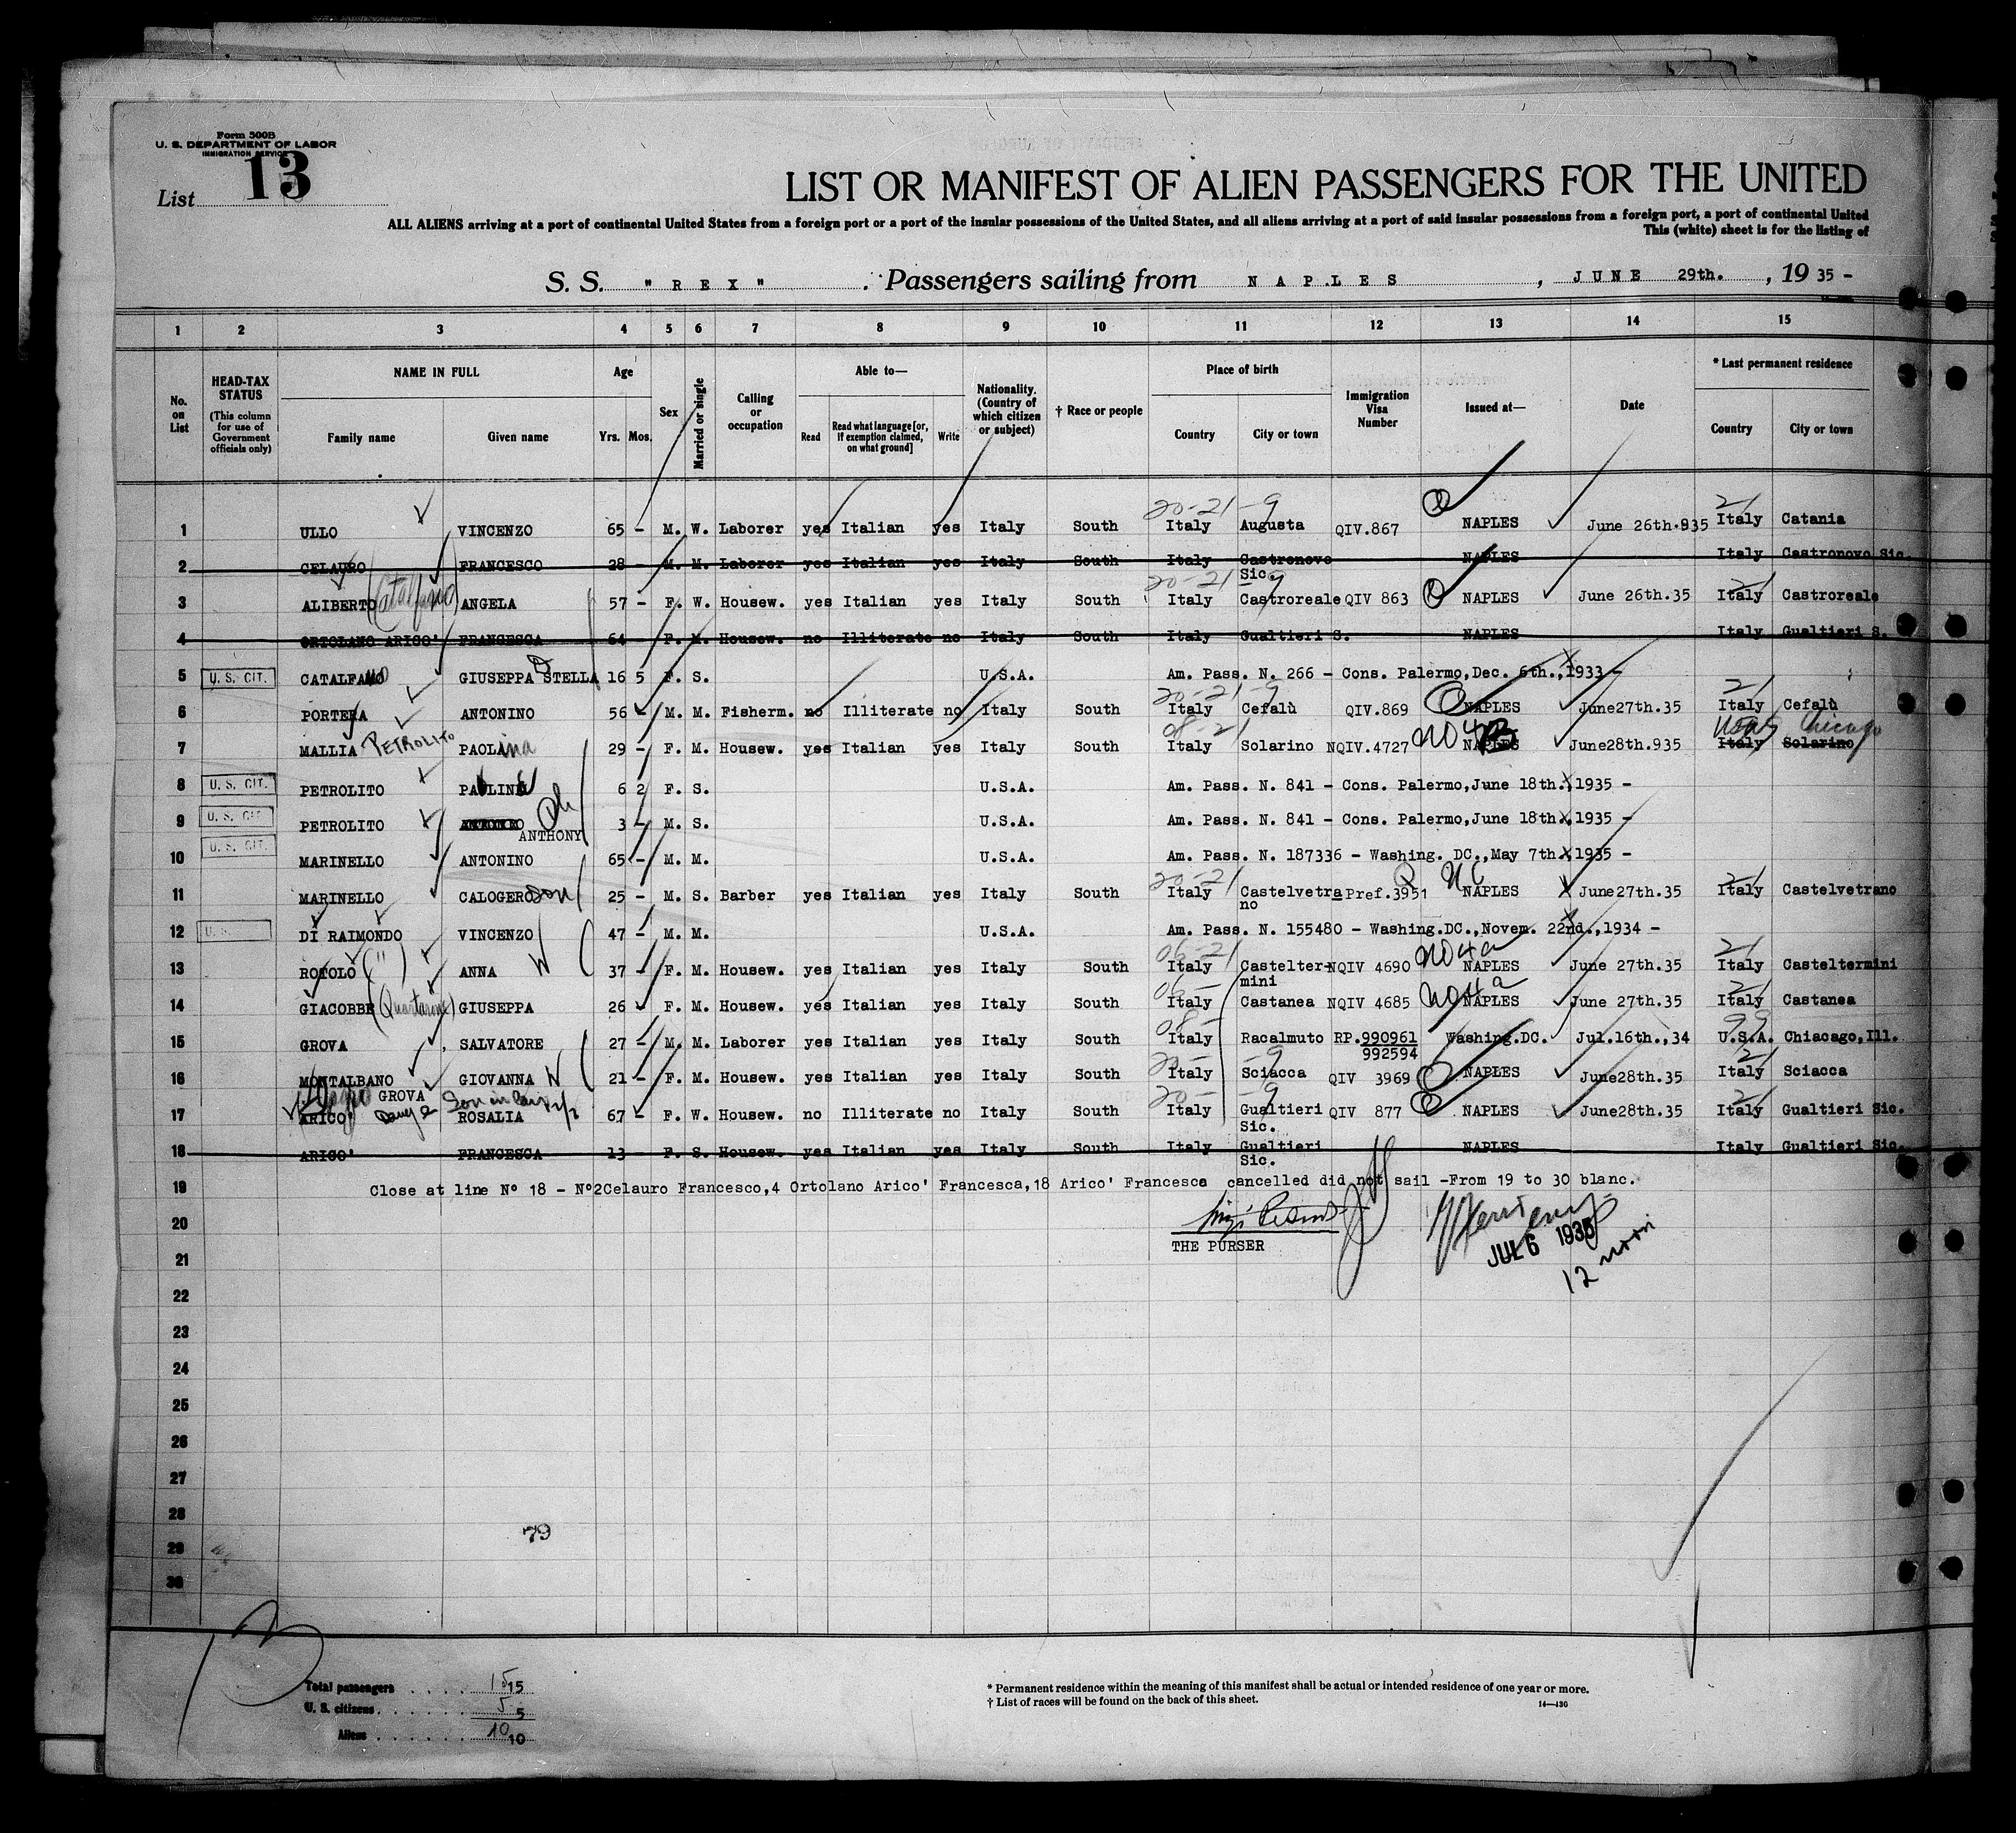 Form 500B
U. S. DEPARTMENT OF LABOR
IMMIGRATION SERVICE
List 13
LIST OR MANIFEST OF ALIEN PASSENGERS FOR THE UNITED
ALL ALIENS arriving at a port of continental United States from a foreign port or a port of the insular possessions of the United States, and all aliens arriving at a port of said insular possessions from a foreign port, a port of continental United
This (white) sheet is for the listing of
S. S. "REX" Passengers sailing from NAPLES, JUNE 29th., 19 35 -
1 2 3 4 5 6 7 8 9 10 11 12 13 14 15
No. on List
HEAD-TAX STATUS (This column for use of Government officials only)
NAME IN FULL Family name Given name
Age Yrs. Mos.
Sex
Married or single
Calling or occupation
Able to— Read Read what language [or, if exemption claimed, on what ground] Write
Nationality. (Country of which citizen or subject)
† Race or people
Place of birth Country City or town
Immigration Visa Number
Issued at—
Date
* Last permanent residence Country City or town
20-21-9 21
1 ULLO VINCENZO 65 - M. W. Laborer yes Italian yes Italy South Italy Augusta QIV.867 NAPLES June 26th.935 Italy Catania
2 CELAURO FRANCESCO 28 - M. M. Laborer yes Italian yes Italy South Italy Castronovo Sic. NAPLES Italy Castronovo Sic.
20-21 9 21
3 ALIBERTO (Catalfamo) ANGELA 57 - F. W. Housew. yes Italian yes Italy South Italy Castroreale QIV 863 NAPLES June 26th.35 Italy Castroreale
4 ORTOLANO ARICO' FRANCESCA 64 - F. M. Housew. no Illiterate no Italy South Italy Gualtieri S. NAPLES Italy Gualtieri S.
5 U. S. CIT. CATALFAMO GIUSEPPA STELLA 16 5 F. S. U.S.A. Am. Pass. N. 266 - Cons. Palermo, Dec. 6th., 1933 -
20-21-9 21
6 PORTERA ANTONINO 56 - M. M. Fisherm. no Illiterate no Italy South Italy Cefalù QIV.869 NAPLES June27th.35 Italy Cefalù
08-21 USA Chicago
7 MALLIA PETROLITO PAOLina 29 - F. M. Housew. yes Italian yes Italy South Italy Solarino NQIV.4727 NO4B NAPLES June28th.935 Italy Solarino
8 U. S. CIT. PETROLITO PAULINE 6 2 F. S. U.S.A. Am. Pass. N. 841 - Cons. Palermo, June 18th., 1935 -
9 U. S. CIT. PETROLITO ANTONIO ANTHONY ch 3 - M. S. U.S.A. Am. Pass. N. 841 - Cons. Palermo, June 18th., 1935 -
10 U. S. CIT. MARINELLO ANTONINO 65 - M. M. U.S.A. Am. Pass. N. 187336 - Washing. DC., May 7th., 1935 -
20-21 Q NC 21
11 MARINELLO CALOGERO son 25 - M. S. Barber yes Italian yes Italy South Italy Castelvetrano Pref.3951 NAPLES June27th.35 Italy Castelvetrano
12 U. S. DI RAIMONDO VINCENZO 47 - M. M. U.S.A. Am. Pass. N. 155480 - Washing.DC., Novem. 22nd., 1934 -
06-21 NO4a 21
13 ROTOLO (") ANNA W 37 - F. M. Housew. yes Italian yes Italy South Italy Casteltermini NQIV 4690 NAPLES June 27th.35 Italy Casteltermini
06- NO4a 21
14 GIACOBBE (Quartarone) GIUSEPPA 26 - F. M. Housew. yes Italian yes Italy South Italy Castanea NQIV 4685 NAPLES June 27th.35 Italy Castanea
08- 99
15 GROVA SALVATORE 27 - M. M. Laborer yes Italian yes Italy South Italy Racalmuto RP.990961 992594 Washing.DC. Jul.16th.,34 U.S.A. Chiacago,Ill.
20- -9 21
16 MONTALBANO GROVA GIOVANNA W 21 - F. M. Housew. yes Italian yes Italy South Italy Sciacca QIV 3969 NAPLES June28th.35 Italy Sciacca
20- -9 21
17 ARICO' ROSALIA 67 - F. W. Housew. no Illiterate no Italy South Italy Gualtieri Sic. QIV 877 NAPLES June28th.35 Italy Gualtieri Sic.
18 ARICO' FRANCESCA 13 F. S. Housew. yes Italian yes Italy South Italy Gualtieri Sic. NAPLES Italy Gualtieri Sic.
19 Close at line N° 18 - N°2Celauro Francesco,4 Ortolano Arico' Francesca,18 Arico' Francesca cancelled did not sail -From 19 to 30 blanc.
20
THE PURSER
JUL 6 1935
12 noon
21
22
23
24
25
26
27
28
79
29
30
13
Total passengers 15 15
U. S. citizens 5 5
Aliens 10 10
* Permanent residence within the meaning of this manifest shall be actual or intended residence of one year or more.
† List of races will be found on the back of this sheet.
14—430